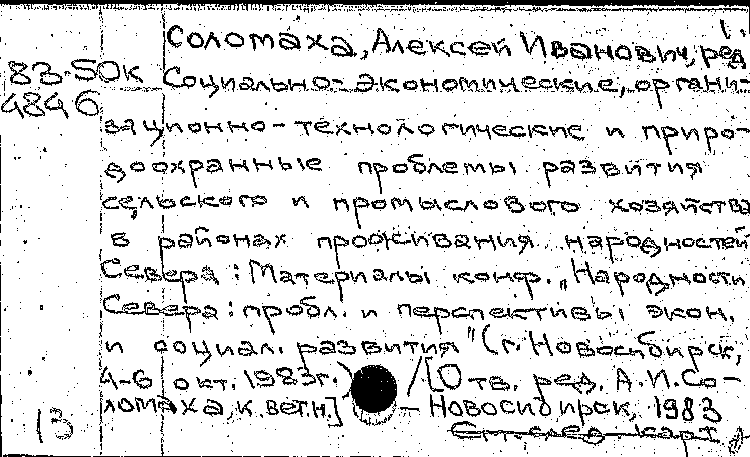 1.
Соломаха, Алексей Иванович, ред
83-50к Социально-экономические, органи-
4846
зационно-технологические и приро-
доохранные проблемы развития
сельского и промыслового хозяйства
в районах проживания народностей
Севера: Материалы конф. „Народности
Севера: пробл. и перспективы экон.
и социал. развития" (г. Новосибирск,
4-6 окт. 1983г.) / [Отв. ред. А.И.Со-
ломаха, к.вет.н.] — Новосибирск, 1983
13 См. след. карт